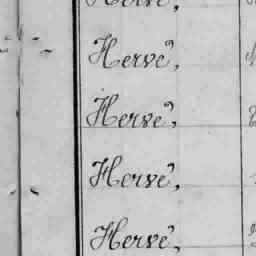 Hervé,
Hervé,
Hervé,
Hervé,
Hervé,